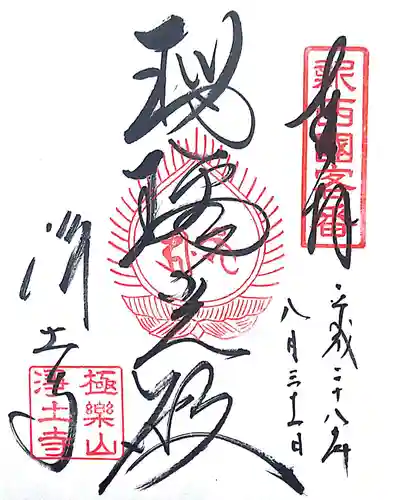 奉拝
新西國客番
平成二十八年
八月三十一日
瑠璃光殿
浄土寺
極樂山
浄土寺